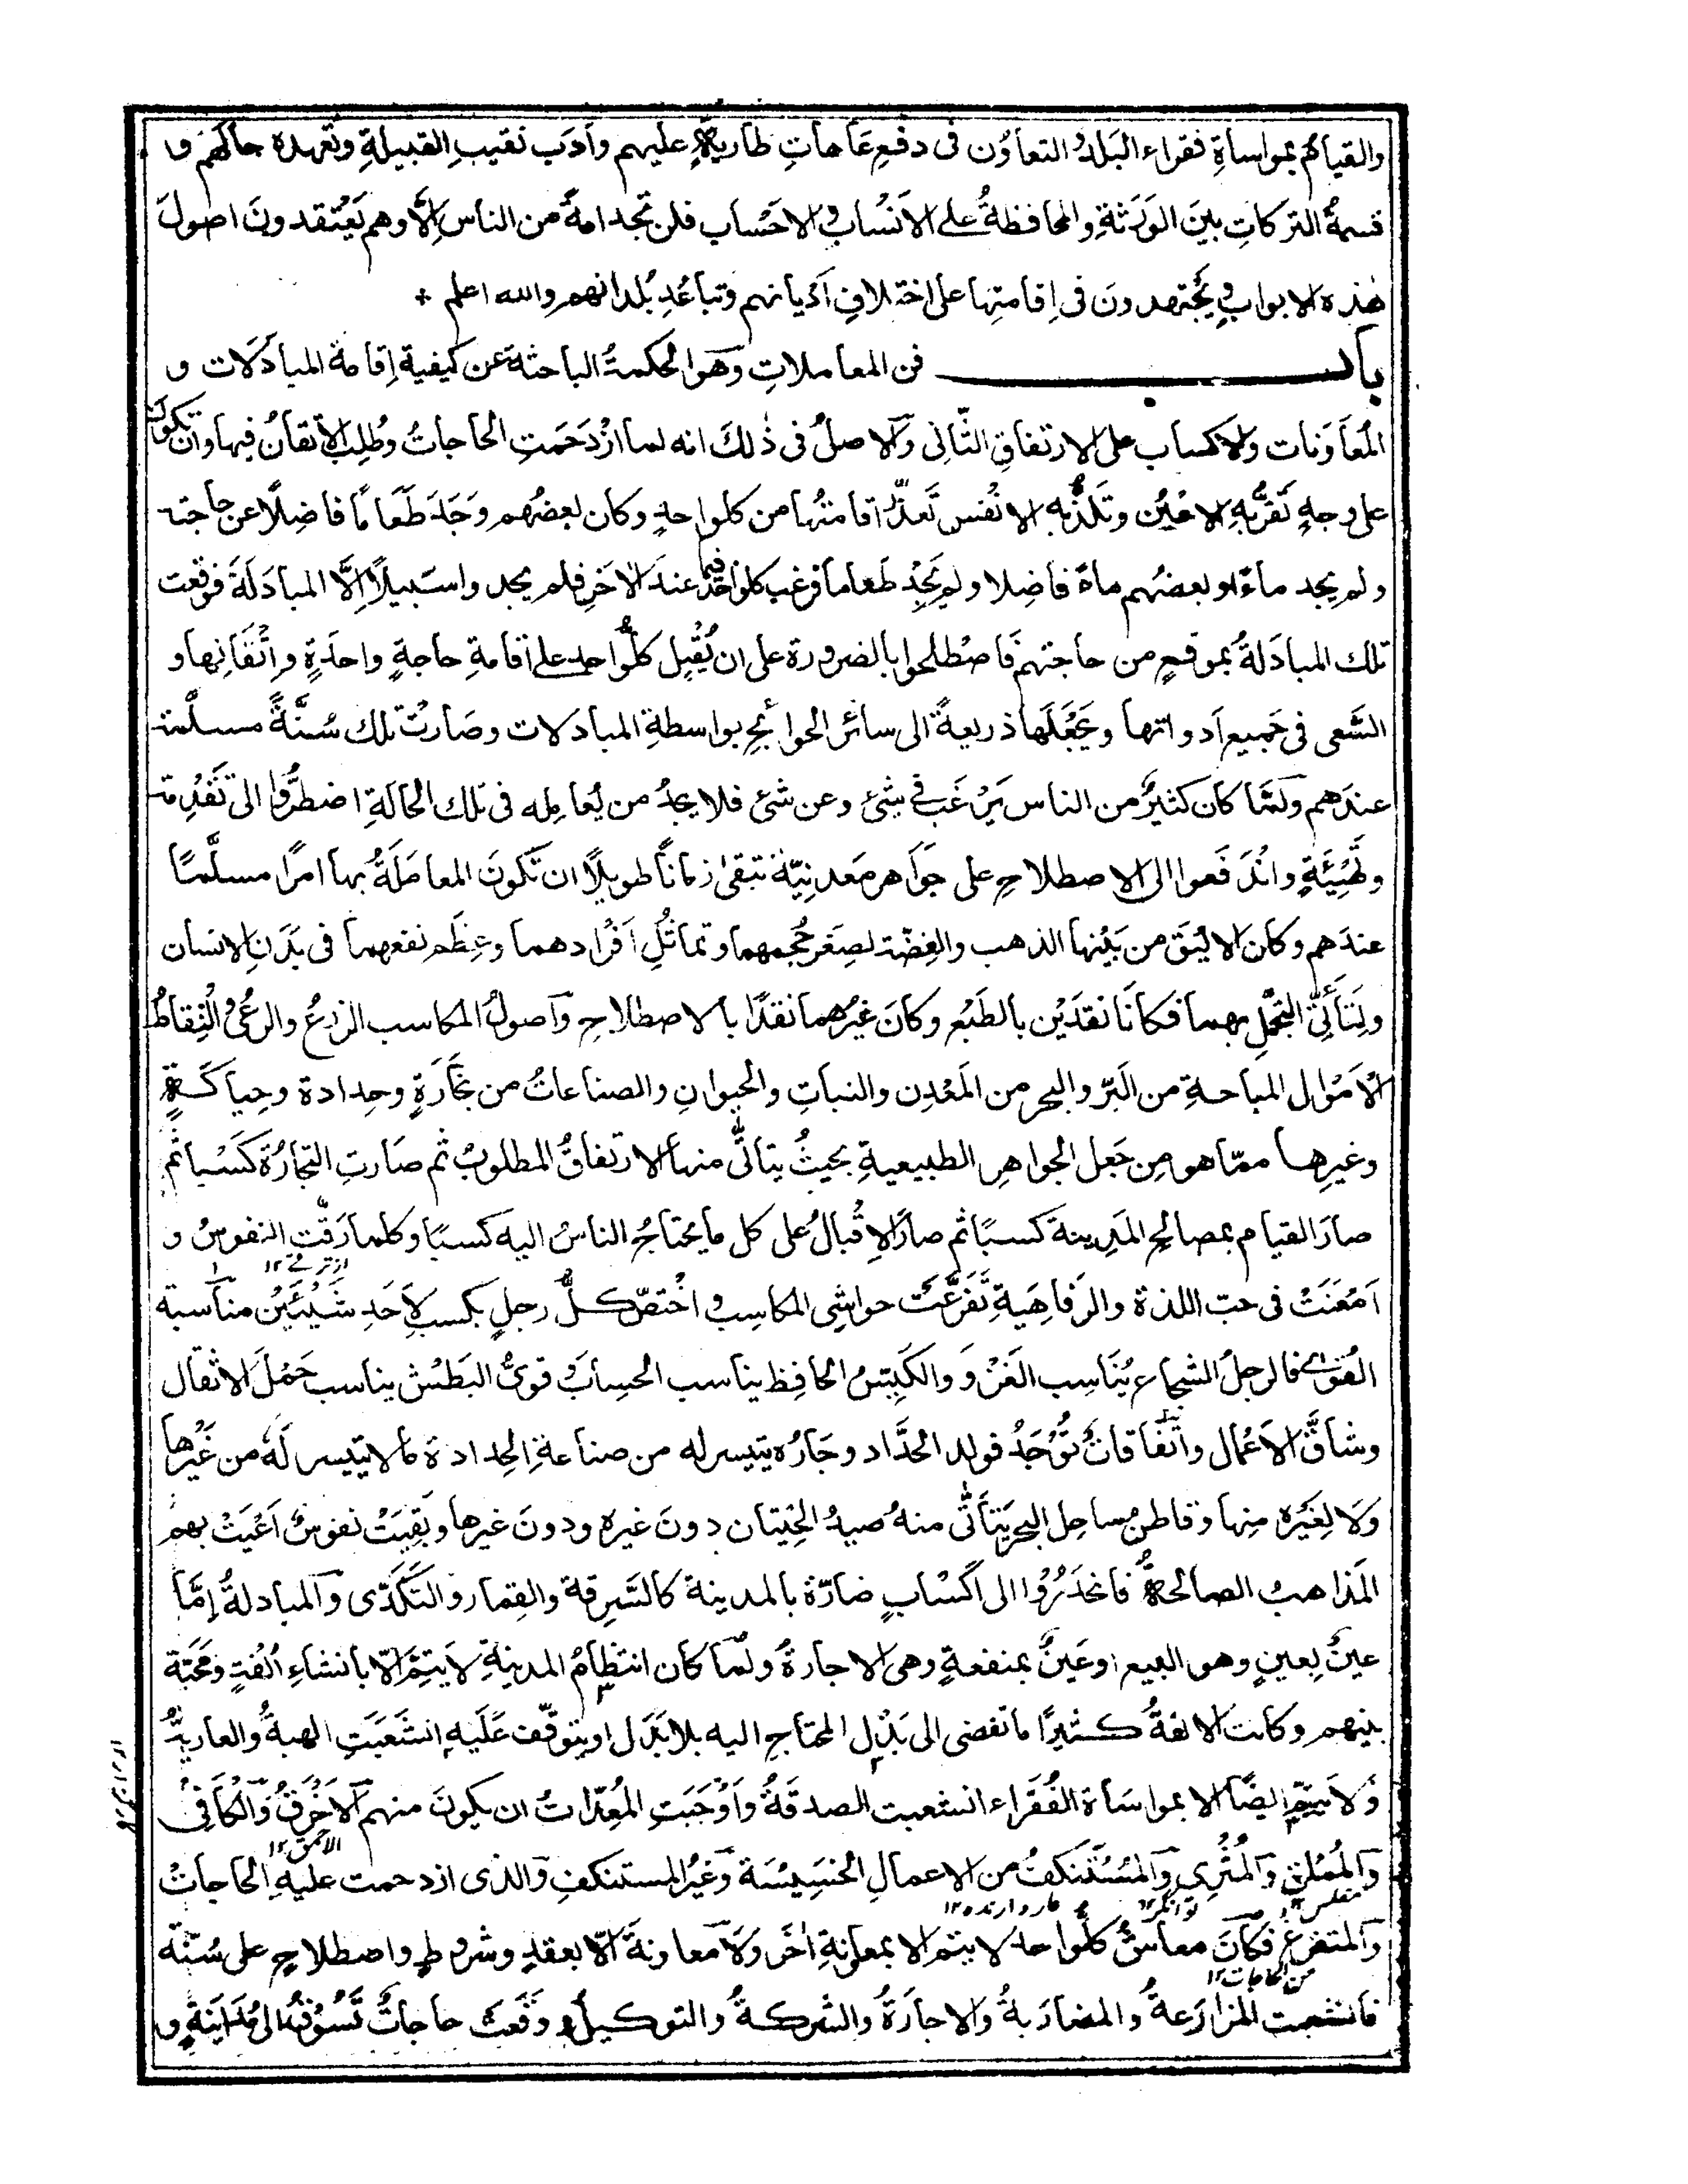 والقيامُ بمواساةِ فقراء البَلَدِ والتعاوُن فى دفعِ عَاهاتٍ طاريةٍ عليهم وأدَب نقيبِ القبيلةِ وتعهده حالَهم و
قسمةُ التركاتِ بينَ الوَرَثةِ والمحافظةُ على الاَنسَاب والاحْساب فلن تجد امةً من الناس اِلَّا وهم يَعْتقدونَ اصولَ
هٰذه الابواب ويَجْتهدونَ فى اِقامتِها على اختلافِ اَدْيانهم وتباعُدِ بُلدانهم والله اعلم ٭
باب فن المعاملاتِ وَهوَ الحكمةُ الباحثةُ عن كيفية اِقامةِ المبادَلات و
المُعَاوَنات والاَكساب على الارتفاقِ الثّانى وَالاصلُ فى ذٰلكَ انه لما ازْدَحَمَتِ الحاجاتُ وطُلِبَ الاِتقانُ فيها وان تكونَ
على وجهٍ تَقَرُّ بِهِ الاعْيُن وتَلَذُّ به الانْفُس تَعذَّرَ اقامتُها من كل واحدٍ وكان بعضُهم وَجَدَ طَعَامًا فاضِلًا عن حاجته
ولم يجد ماءً او بعضُهم ماءً فاضِلا ولم يَجِدْ طعاما فرغب كل واحدٍ فيما عندَ الاٰخَرِ فلم يجدوا سَبيلًا اِلَّا المبادَلَةَ فوقعت
تلك المبادَلةُ بموقعٍ من حاجتهم فاصْطلحوا بالضرورة على ان يُقْبِل كلُّ واحد على اقامةِ حاجةٍ واحدَةٍ واِتْقَانِها و
السَّعى فى جَميع اَدواتها ويَجْعَلَها ذريعةً الى سائر الحوائجِ بواسطةِ المبادَلات وصَارَتْ تلك سُنَّةً مسلَّمة
عندَهم ولَمَّا كان كثيرٌ من الناس يَرْغَب فى شئ وعن شئ فلا يجدُ من يُعامِله فى تلك الحالَةِ اضطرُّوا الى تَقْدِمة
وتَهْيِئَةٍ وانْدَفَعوا الى الاصطلاحِ على جَوَاهر مَعدنِيّةٍ تبقىٰ زمانًا طويلًا ان تكونَ المعامَلَةُ بها امرًا مسلَّمًا
عندَهم وكان الاليَقَ من بَيْنِها الذهب والفِضّة لصِغَرِ حَجمهما وتماثُلِ اَفْرادهما وعِظَمِ نفعهما فى بَدَنِ الانسان
ولِتَأَتِّى التجمُّلِ بهما فكانَا نقدَيْن بالطَبْع وكانَ غيرُهما نقدًا بالاصطلاحِ وَاصولُ المكاسب الزرعُ والرعْىُ والْتِقاطُ
الاَمْوال المباحةِ من البَرّ والبحر من المَعْدِن والنباتِ والحيوانِ والصناعاتُ من نِجَارَةٍ وحِدادة وحِياكةٍ
وغيرِها ممّا هو مِن جَعل الجواهرِ الطبيعيةِ بحيثُ يتاتّى منها الارتفاقُ المطلوبُ ثم صَارتِ التجارةُ كَسْبا ثم
صارَ القيام بمصالحِ المَدِينة كسبًا ثم صارَ الاِقْبالُ على كل ما يَحتاجُ الناسُ اليه كسبًا وكلما رَقَّتِ النفوسُ و
اَمْعَنَتْ فى حبّ اللذة والرَفاهِيَةِ تَفَرَّعَتْ حواشِى المكاسِبِ واخْتصّ كلُّ رجلٍ بكسب لاَحَدِ شَيْئَيْن مناسبة
القوىٰ فالرجلُ الشجاع يُنَاسِب الغَزْوَ والكَيِّسُ الحافِظ يناسب الحسابَ وقوىُّ البَطْش يناسب حَمْلَ الاثقال
وشاقَّ الاَعْمال واتِّفاقاتٌ تُوْجَدُ فولد الحدَّاد وجَارُه يتيسر له من صناعةِ الحِدادة ما لا يتيسر لَهُ من غيرها
ولَا لِغَيْرِه مِنها وقاطنُ ساحِل البحر يَتَأَتّى منهُ صيدُ الحِيْتان دونَ غيرِه ودونَ غيرها وبَقِيَتْ نفوسٌ اَعْيَتْ بهم
المَذاهبُ الصالحةُ فانحَدَرُوْا الى اكْسابٍ ضارّة بالمدينة كالسَّرِقة والقِمار والتَكَدّى وَالمبادلةُ اِمَّا
عينٌ بِعينٍ وهو البيع اوعَينٌ بمنفعةٍ وهى الاجارةُ ولَمّا كان انتظامُ المدينةِ لا يَتِمُّ اِلّا بانشاءِ اُلفةٍ ومَحَبّة
بينهم وكانت الالفةُ كثيرًا ما تفضى الى بَذْلِ المحتاجِ اليه بلا بَدَل او يتوقّف عَلَيه انشَعَبَتِ الهبةُ والعاريةُ
ولَا يَتِمُّ ايضًا الا بمواسَاة الفُقَراء انشعبت الصدقةُ وَاَوْجَبَتِ المُعِدّاتُ ان يكونَ منهم الاَخْرَقُ وَالكافِى
وَالمُمْلِقُ وَالمُثْرِى وَالمُسْتَنكِفُ من الاعمالِ الخسيسَة وَغيرُ المستنكفِ وَالذى ازدحمت عليهِ الحاجاتُ
وَالمتفرغُ فكانَ معاشُ كل واحد لا يتم الا بمعاونةِ اٰخَر ولَا معاونةَ الّا بعقدٍ وشروطٍ واصطلاحٍ على سُنّة
فانشعبت المُزارَعةُ والمضارَبةُ والاجارَةُ والشركةُ والتوكيلُ ووَقَعَتْ حاجاتٌ تَسُوْقُ الى مُدَايَنةٍ و
الاحمق ١٢
مفلس ١٢
توانگر ١٢
عار دارنده ١٢
من الحاجات ١٢